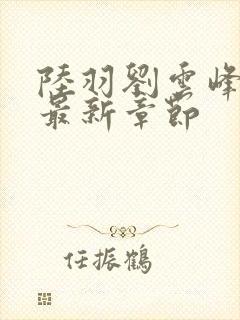 陸羽劉雲峰
最新章節
任振鶴